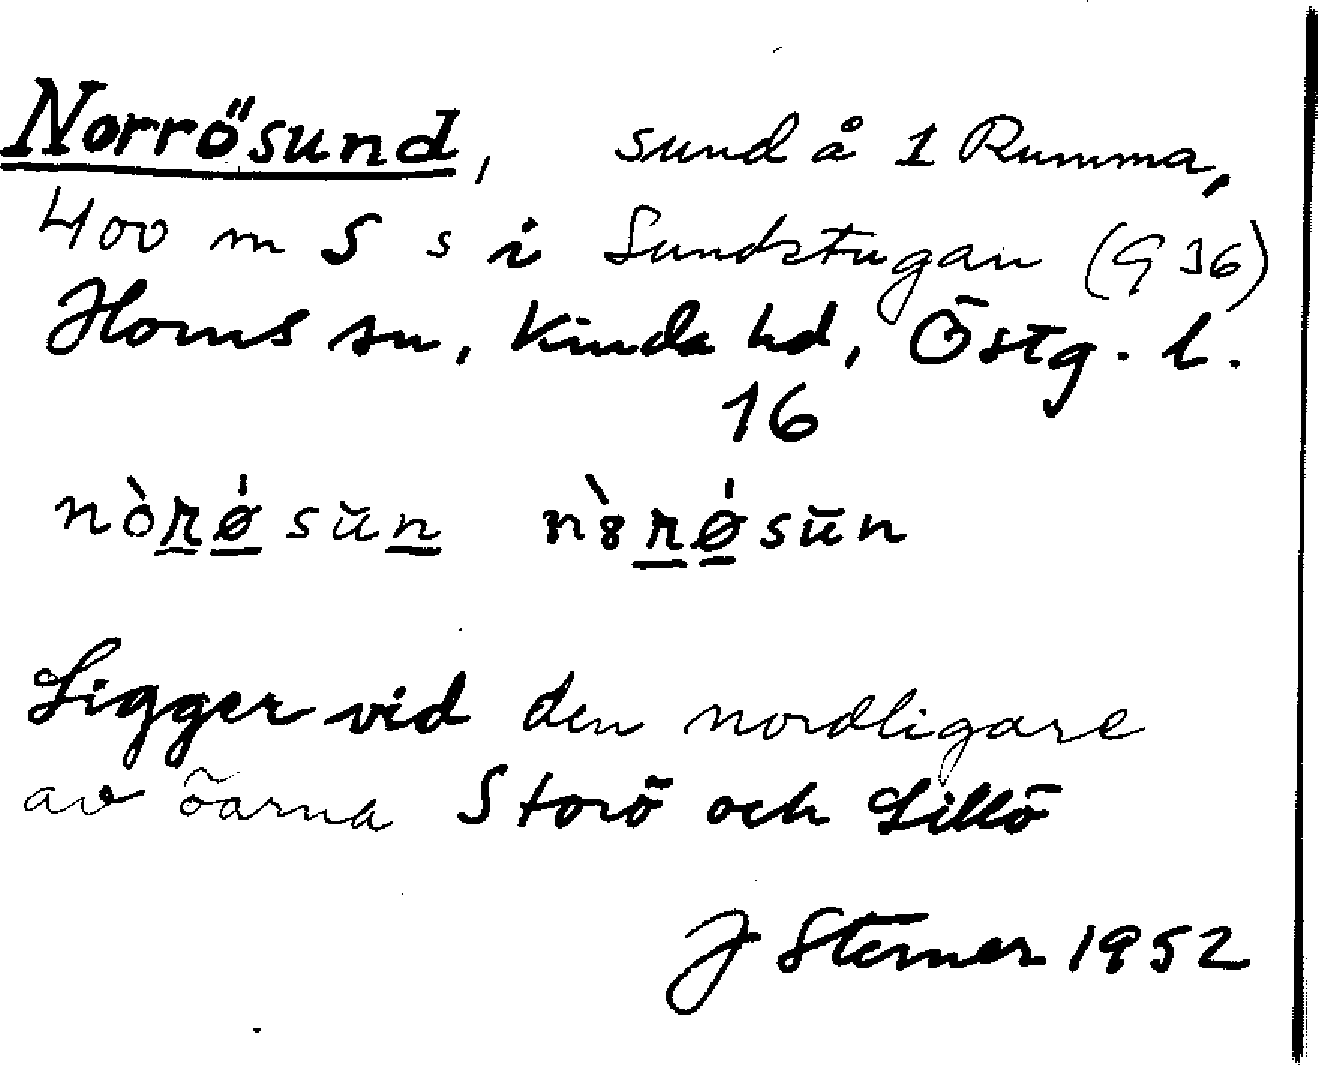 Norrösund, sund å 1 Rumma,
400 m S s i Sundstugan (G 36)
Horns sn, Kinda hd, Östg. l.
16
nòrǿsŭn nȣ̀rǿsūn
Ligger vid den nordligare
av öarna Storö och Lillö
J Sterner 1952